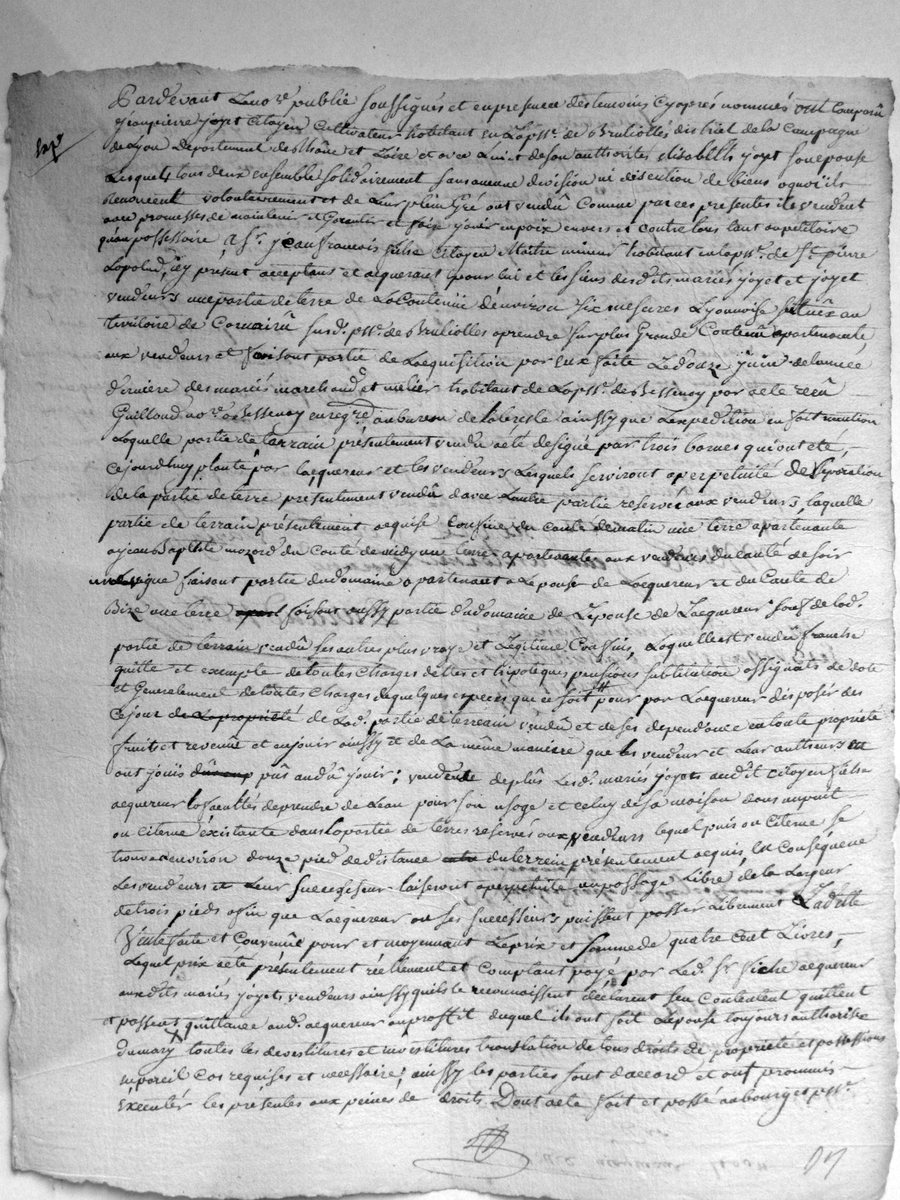 Pardevant Le no.re publié soussignés et en presence des temoins cy apres nommés est Comparû
exp.
jean pierre joyet Citoyen Cultivateur habitant en La pss.e de Bruliolles district de la Campagne
de Lyon departement de Rhône et Loire et avec Lui et de son authorités elisabeth joyet son epouse
Lesquels tous deux ensemble solidairement sans aucune division ni discution de biens a quoi ils
Renoncent volontairement et de Leur plein Gré ont vendû Comme par ces presentes ils vendent
avec promesses de maintenir et Garentir et faire jouir en paix envers et contre tous tant au petitoire
qu'au possessoire, a S.r jean francois fialse Citoyen Maitre mineur habitant en la pss.e de S.t pierre
Lapalud, icy present acceptans et aquerant pour lui et les siens desdits mariés joyet et joyet
vendeurs une partie de terre de La Contenüe d'environ six mesures Lyonnoise situéx au
territoire de Cornairû sus d. pss.e de Bruliolles a prendre sur plus Grande Contenüe apartenante
aux vendeurs et faisont partie de L'aquisition par eux faite Le douze juin de L'année
derniere des mariés marchand et melier habitant de La pss.e de Bessenay par acte recû
Guilloud no.re a Bessenay enreg.ré au bureau de Labresle ainssy que L'expedition en fait mention
Laquelle partie de terrain présentement vendû a eté designé par trois bornes qui ont eté,
Cejourdhuy planté par L'aquereur et les vendeurs Lesquels serviront a perpetuité de séparation
de la partie de terre présentiment vendû d'avec L'autre partie reservée aux vendeurs, laquelle
partie de terrain présentement aquise Confine du Couté de matin une terre apartenante
a jean Baptiste mozard du Couté de midy une terre apartenante aux vendeurs du Couté de soir
une vigne faisont partie du domaine apartenant a L'epouse de L'acquereur et du Couté de
Bize une terre faisont aussy partie du domaine de L'épouse de L'acquereur sauf de lad.
partie de terrain vendû ses autres plus vraye et Legitime Confins, Laquelle est vendû franche
quitte et exempte de toutes Charges dettes et hipotêques pensions substitution assignats de dote
et Generalement de toutes Charges de quelques especes que ce soit pour par L'acquereur disposér dès
Cejour de La propriété de Lad. partie de terrain vendû et de ses dépendence en toute proprieté
fruit et revenüe et en jouir ainssy et de La même maniere que les vendeur et Leur autheurs en
ont jouïs pûs au dû jouir; vendent de plûs Lesd. mariés joyets audit citoyen fialse
aquereur la facultés de prendre de L'eau pour son usage et celuy de sa maison dans un puit
ou citerne éxistante dans La partie de terres reservés aux vendeurs lequel puis ou citerne se
trouve d'environ douze pied de distance du terrain présentement acquis en Conséquence
Les vendeurs et Leur successeur laiseront a perpetuité un passage Libre de la Largeur
de trois pieds afin que L'acquereur ou ses successeurs puissent passer Librement Laditte
Vente faite et Convenüe pour et moyennant Le prix et somme de quatre Cent Livres,
Lequel prix a eté présentement réellement et Comptant payé par Led. S.r fiche aquereur
auxdits mariés joyets vendeurs ainssy qu'ils le reconnaissent déclarent s'en Contentent quittent
et passent quittance aud. aquereur au proffit duquel ils ont fait L'épouse toujours authorisée
du mary toutes les devestitures et investitures translation de tous droits de propriete et possessions
en pareil Cas requises et necessaire; ainssy les parties sont d'accord et ont prommis
Exécutér les presentes aux peines de droits Dont acte fait et passé au bourg et pss.e